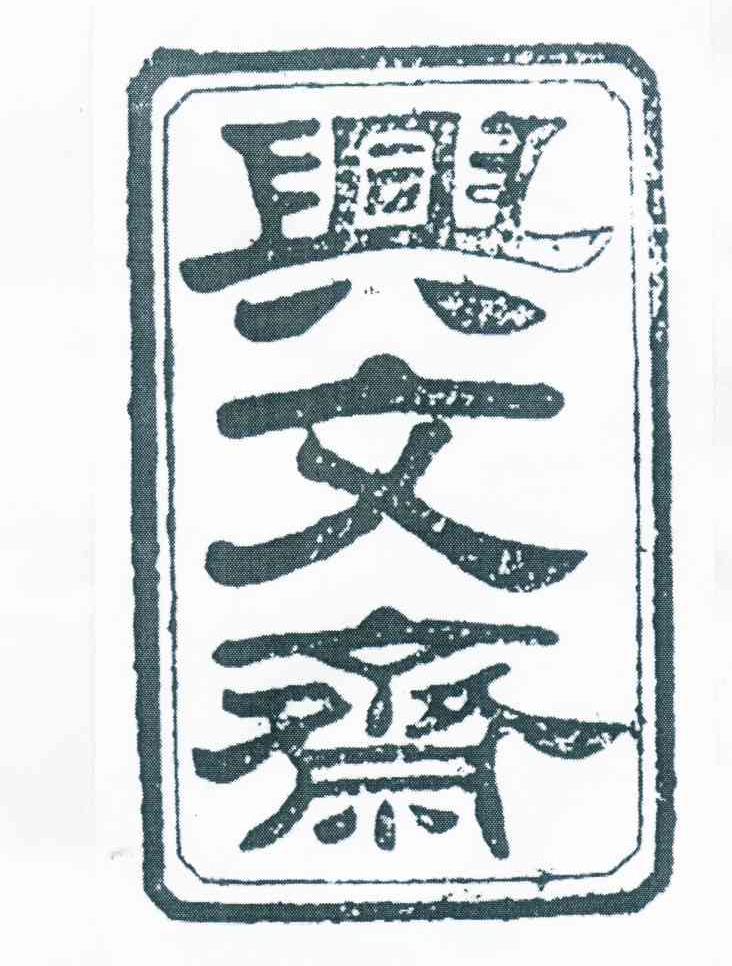 興文齋